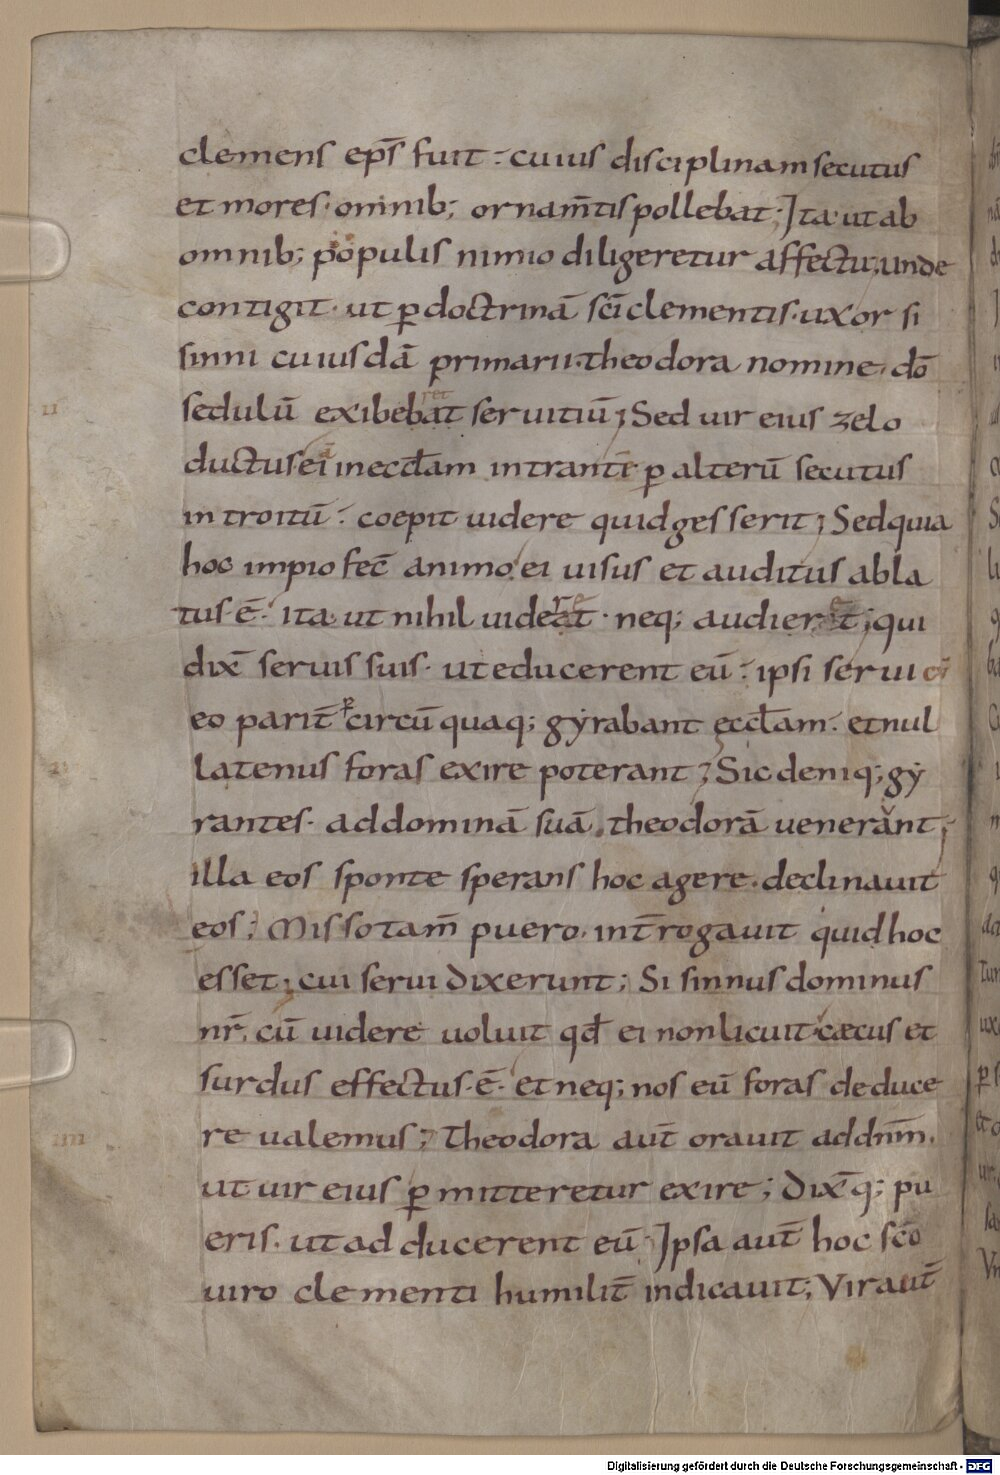 clemens ep̅s fuit· cuius disciplinam secutus
et mores· omnib; ornam̅tis pollebat· Ita ut ab
omnib; populis nimio diligeretur affectu; unde
contigit· ut ꝑ doctrinā sc̅i clementis· uxor si
sinni cuiusdā primarii· theodora nomine· dō
ret
II sedulū exibebat seruitiū; Sed uir eius zelo
ductus· eā in eccl̅am intrantē ꝑ alterū secutus
introitū· coepit uidere quid gesserit; Sed quia
hoc impio fec̅ animo· ei uisus et auditus abla
tus· ē· ita ut nihil videret· neq; audieret; qui
dix̅ seruis suis· ut educerent eū· ipsi serui cū
eo parit̅ ꝑ circū quaq; gyrabant eccl̅am· et nul
latenus foras exire poterant; Sic deniq; gy
rantes· ad dominā suā, theodorā venerant;
illa eos sponte sperans hoc agere· declinauit
eos; Misso tam̅ puero· int̅rogauit quid hoc
esset; cui serui dixerunt; Si sinnus dominus
nr̅· cū uidere uoluit qd̅ ei non licuit· cæcus et
surdus effectus· ē· et neq; nos eū foras deduce
IIII re ualemus; Theodora aut̅ orauit ad dn̅m·
ut uir eius ꝑmitteretur exire; Dix̅q; pu
eris· ut adducerent eū· Ipsa aut̅ hoc sc̅o
uiro clementi humilit̅ indicauit; Vir aut̅
Digitalisierung gefördert durch die Deutsche Forschungsgemeinschaft - DFG